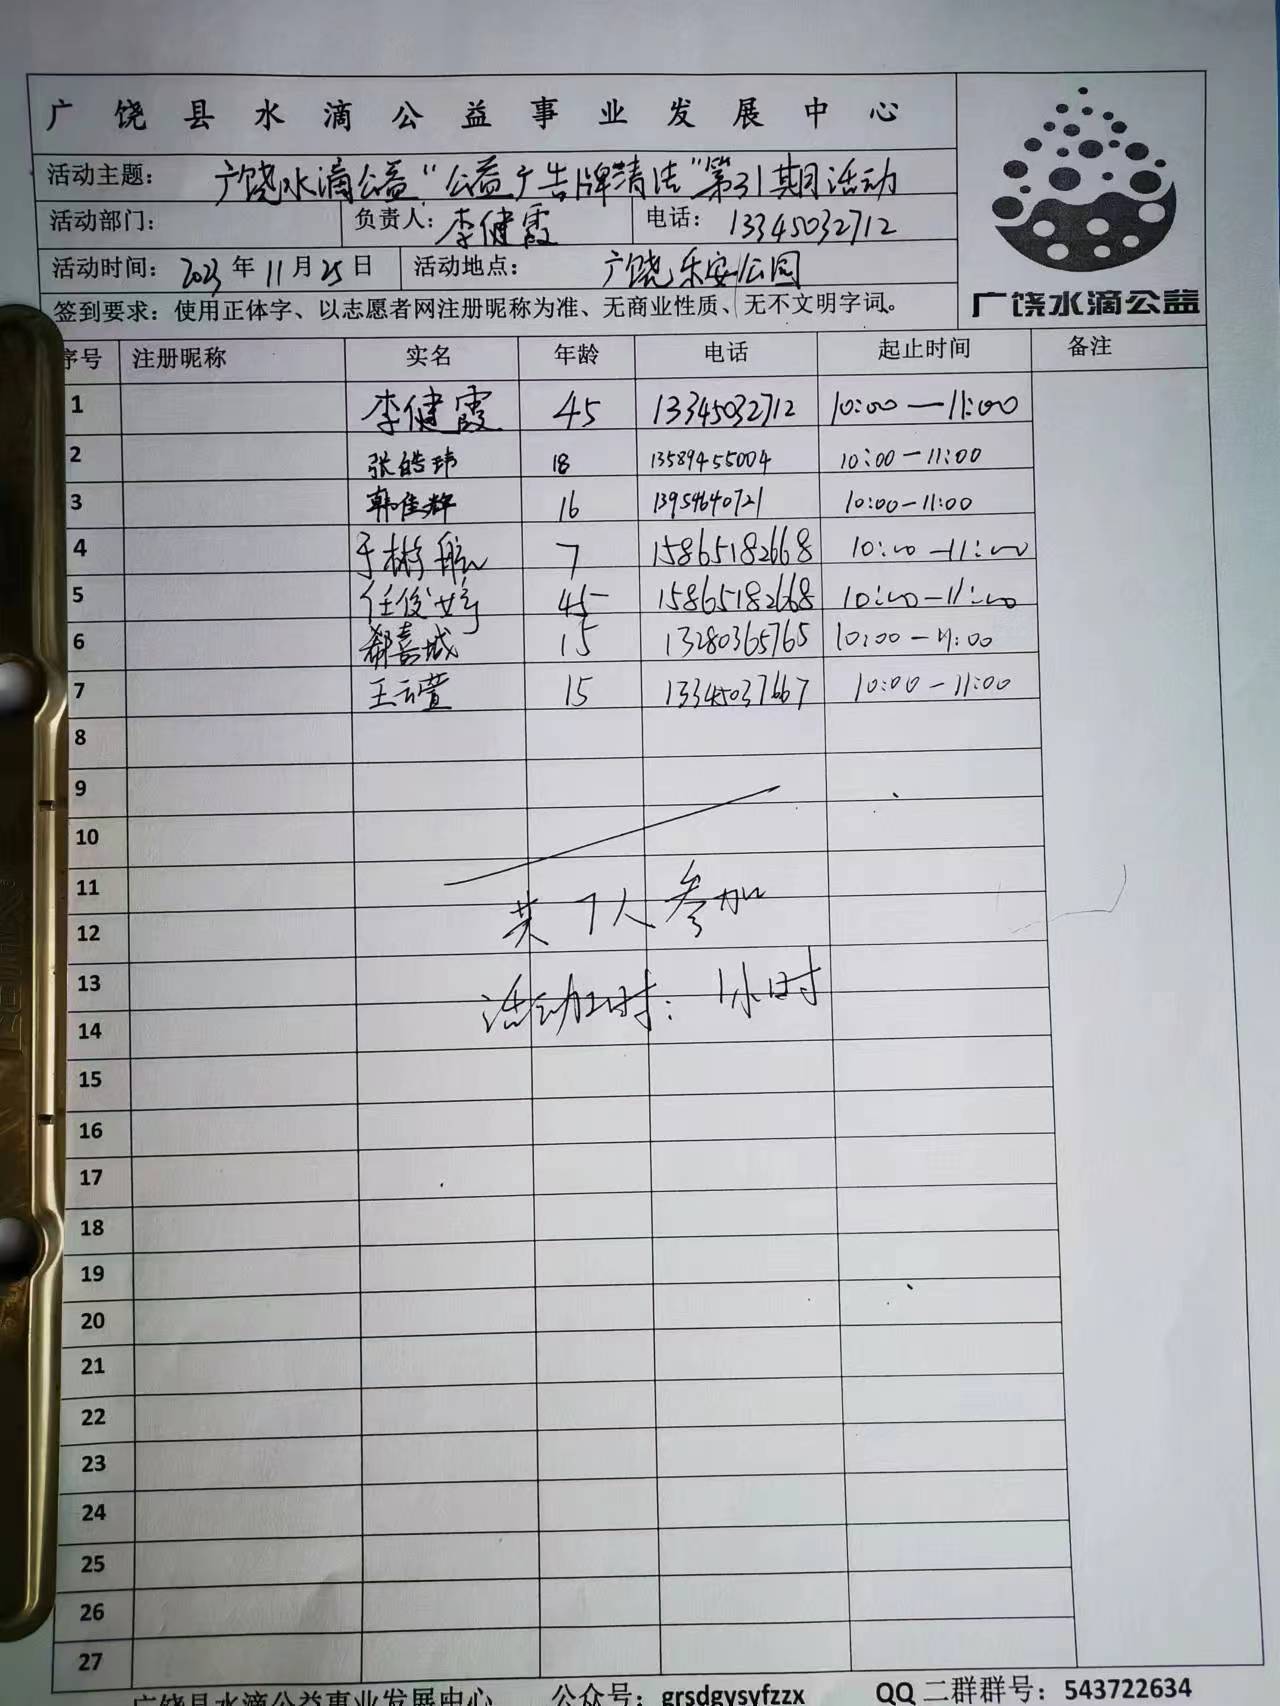 广饶县水滴公益事业发展中心
活动主题： 广饶水滴公益“公益广告牌清洁”第31期活动
活动部门： 负责人：李健霞 电话：13345032712
活动时间：2023年11月25日 活动地点：广饶乐安公园
签到要求：使用正体字、以志愿者网注册昵称为准、无商业性质、无不文明字词。
广饶水滴公益
序号 注册昵称 实名 年龄 电话 起止时间 备注
1 李健霞 45 13345032712 10:00—11:00
2 张皓玮 18 13589455004 10:00—11:00
3 韩佳辉 16 13954640721 10:00—11:00
4 于彬航 7 15865182668 10:00—11:00
5 任俊婷 45 15865182668 10:00—11:00
6 郗嘉城 15 13280365765 10:00—11:00
7 王云萱 15 13345037667 10:00—11:00
8
9
10
11
共7人参加
12
13
活动工时：1小时
14
15
16
17
18
19
20
21
22
23
24
25
26
27
广饶县水滴公益事业发展中心 公众号：grsdgysyfzzx QQ二群群号：543722634